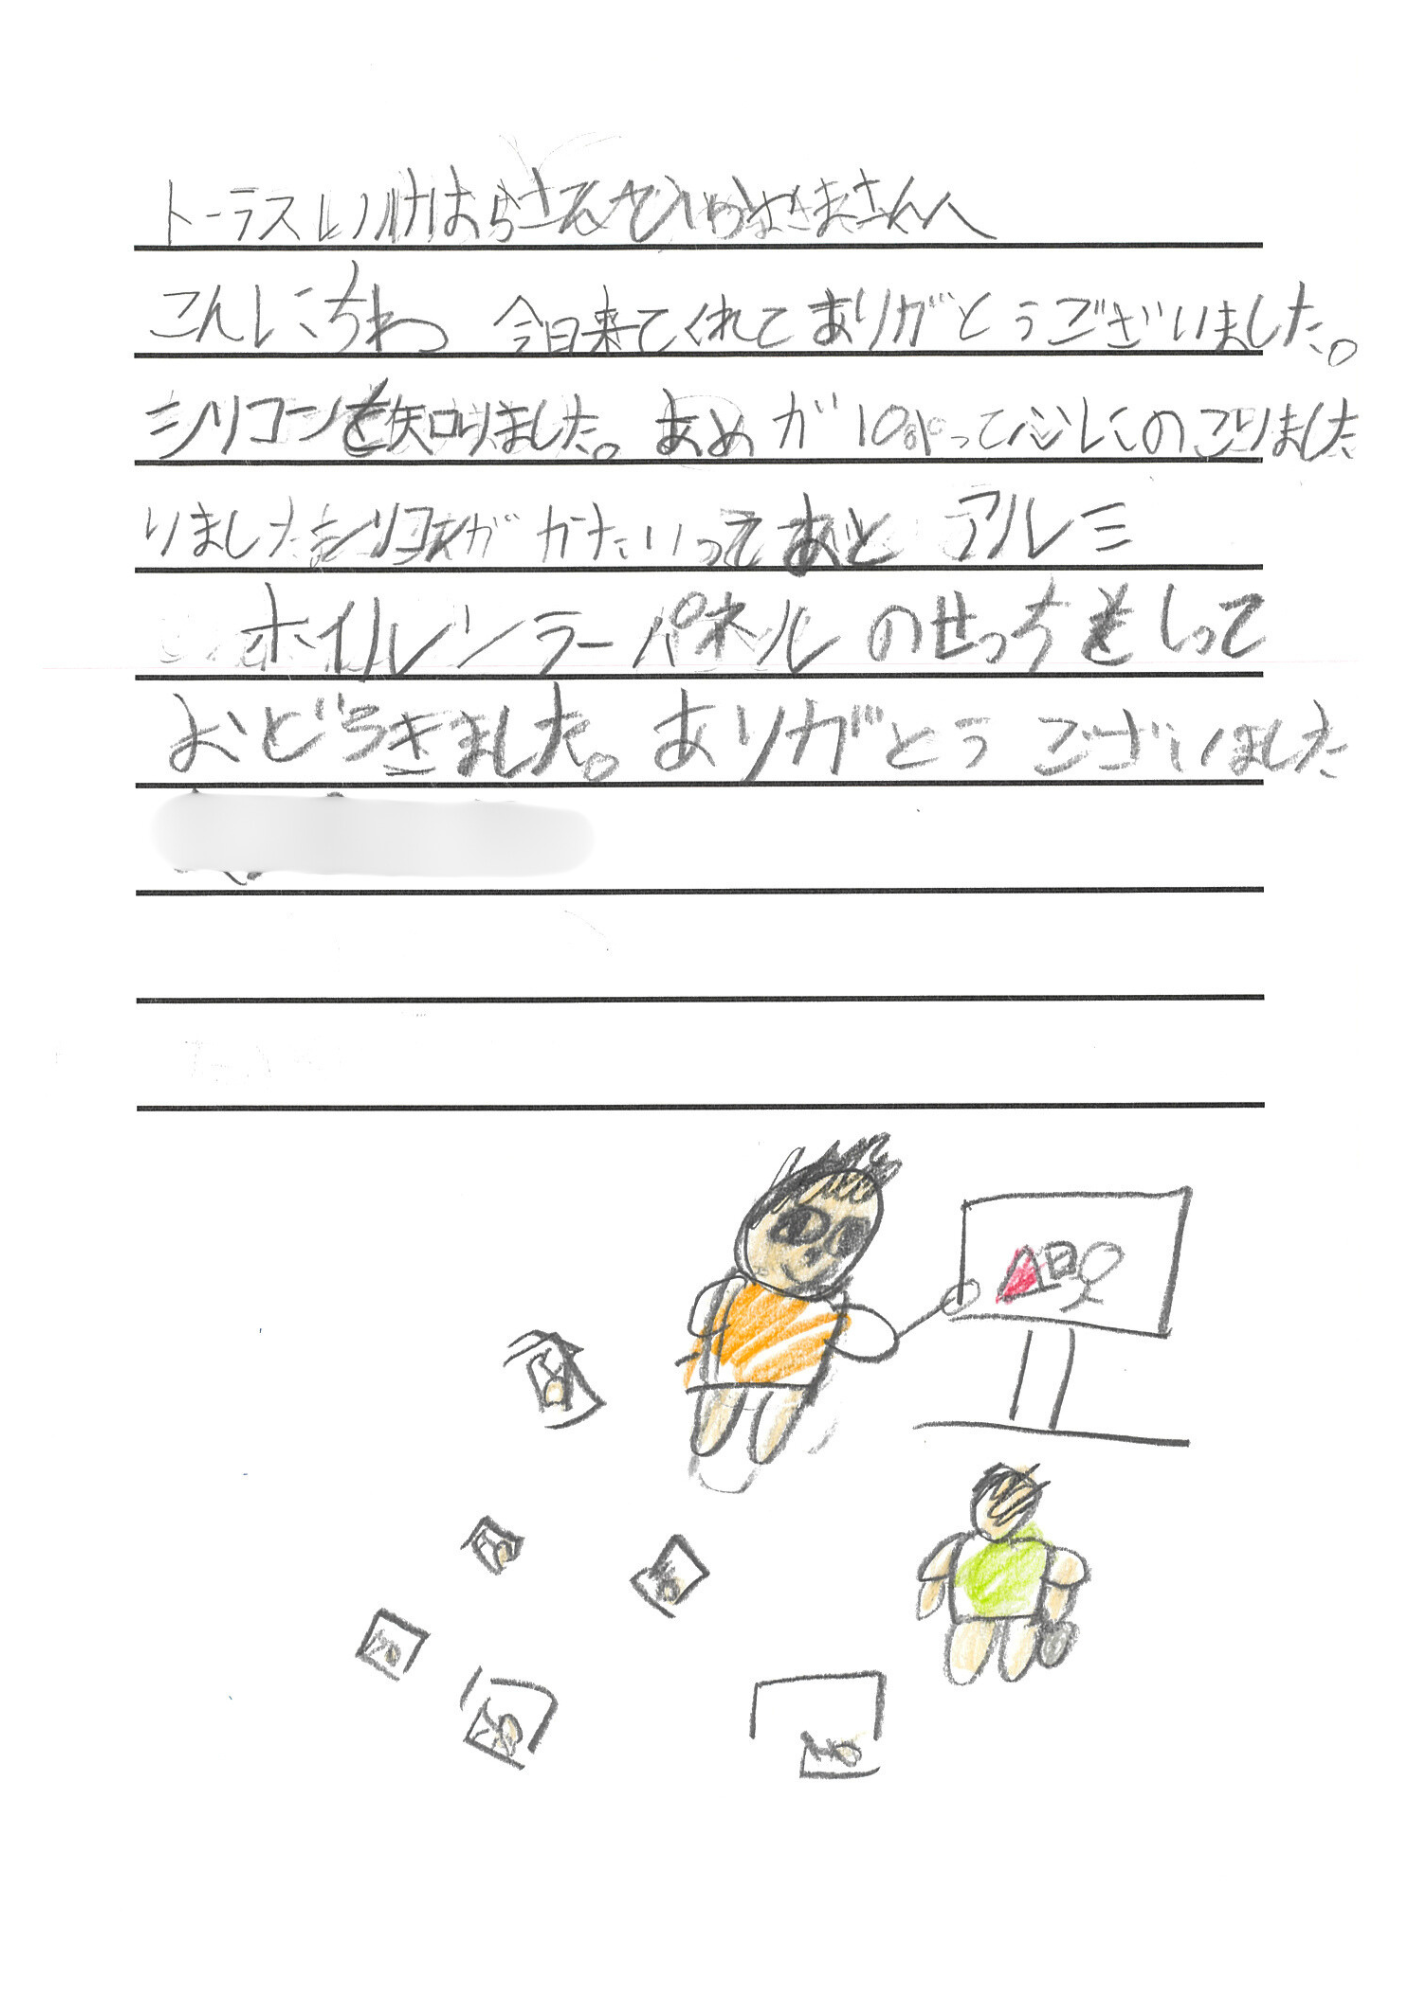 トーラス さん さんへ
こんにちわ 今日来てくれてありがとうございました。
シリコンを知りました。あめが10 って心にのこりました
りました シリコンが かたいって あと アルミ
ホイルソーラーパネルのせっちをしって
おどろきました。ありがとう ございました
ABC